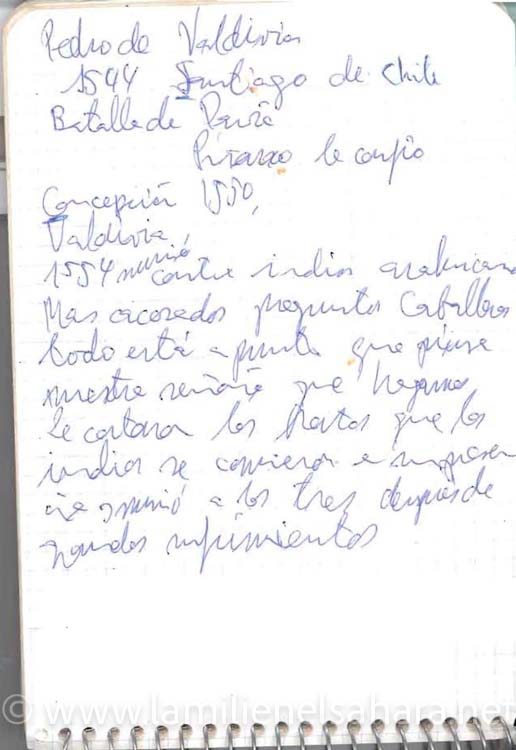 Pedro de Valdivia
1544 Santiago de Chile
Batalla de Pavía
Pizarro le confió
Concepción 1550,
Valdivia,
1554 murió contra indios araucano
Mas acosados pregunto Caballeros
todo está a punto que
nuestra señoria que hagamos
Le cortaron los tratos que los
indios se comieron e
cia y murió a los tres después de
grandes sufrimientos
© www.lamilienelsahara.net